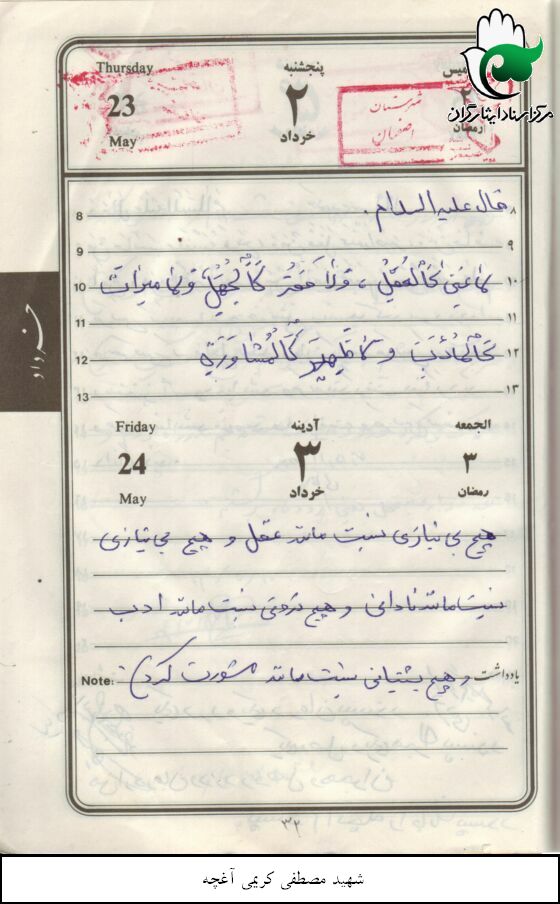 مرکز اسناد ایثارگران
Thursday
23
May
پنجشنبه
۲
خرداد
شهرستان
اصفهان
رمضان
قال علیه السلام.
لاغِنیَ کَالْعَقْلِ، وَلا فَقْرَ کَالْجَهْلِ وَلا میراثَ
کَالْاَدَبِ وَ لا ظَهیرَ کَالْمُشاوَرَةِ
8
9
10
11
12
13
۸
۹
۱۰
۱۱
۱۲
۱۳
خرداد
Friday
24
May
آدینه
۳
خرداد
الجمعه
۳
رمضان
هیچ بی نیازی نیست مانند عقل و هیچ بی نیازی
نیست مانند نادانی و هیچ ثروتی نیست مانند ادب
یادداشت و هیچ پشتیانی نیست مانند مشورت کردن Note:
۳۲
شهید مصطفی کریمی آغچه